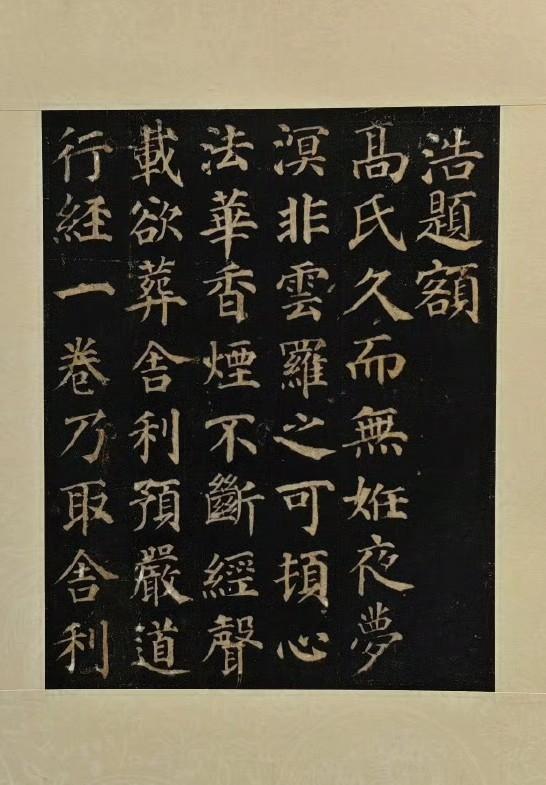 浩題額
髙氏久而無姙夜夢
溟非雲羅之可頓心
法華香煙不斷經聲
載欲葬舍利預嚴道
行経一卷乃取舎利